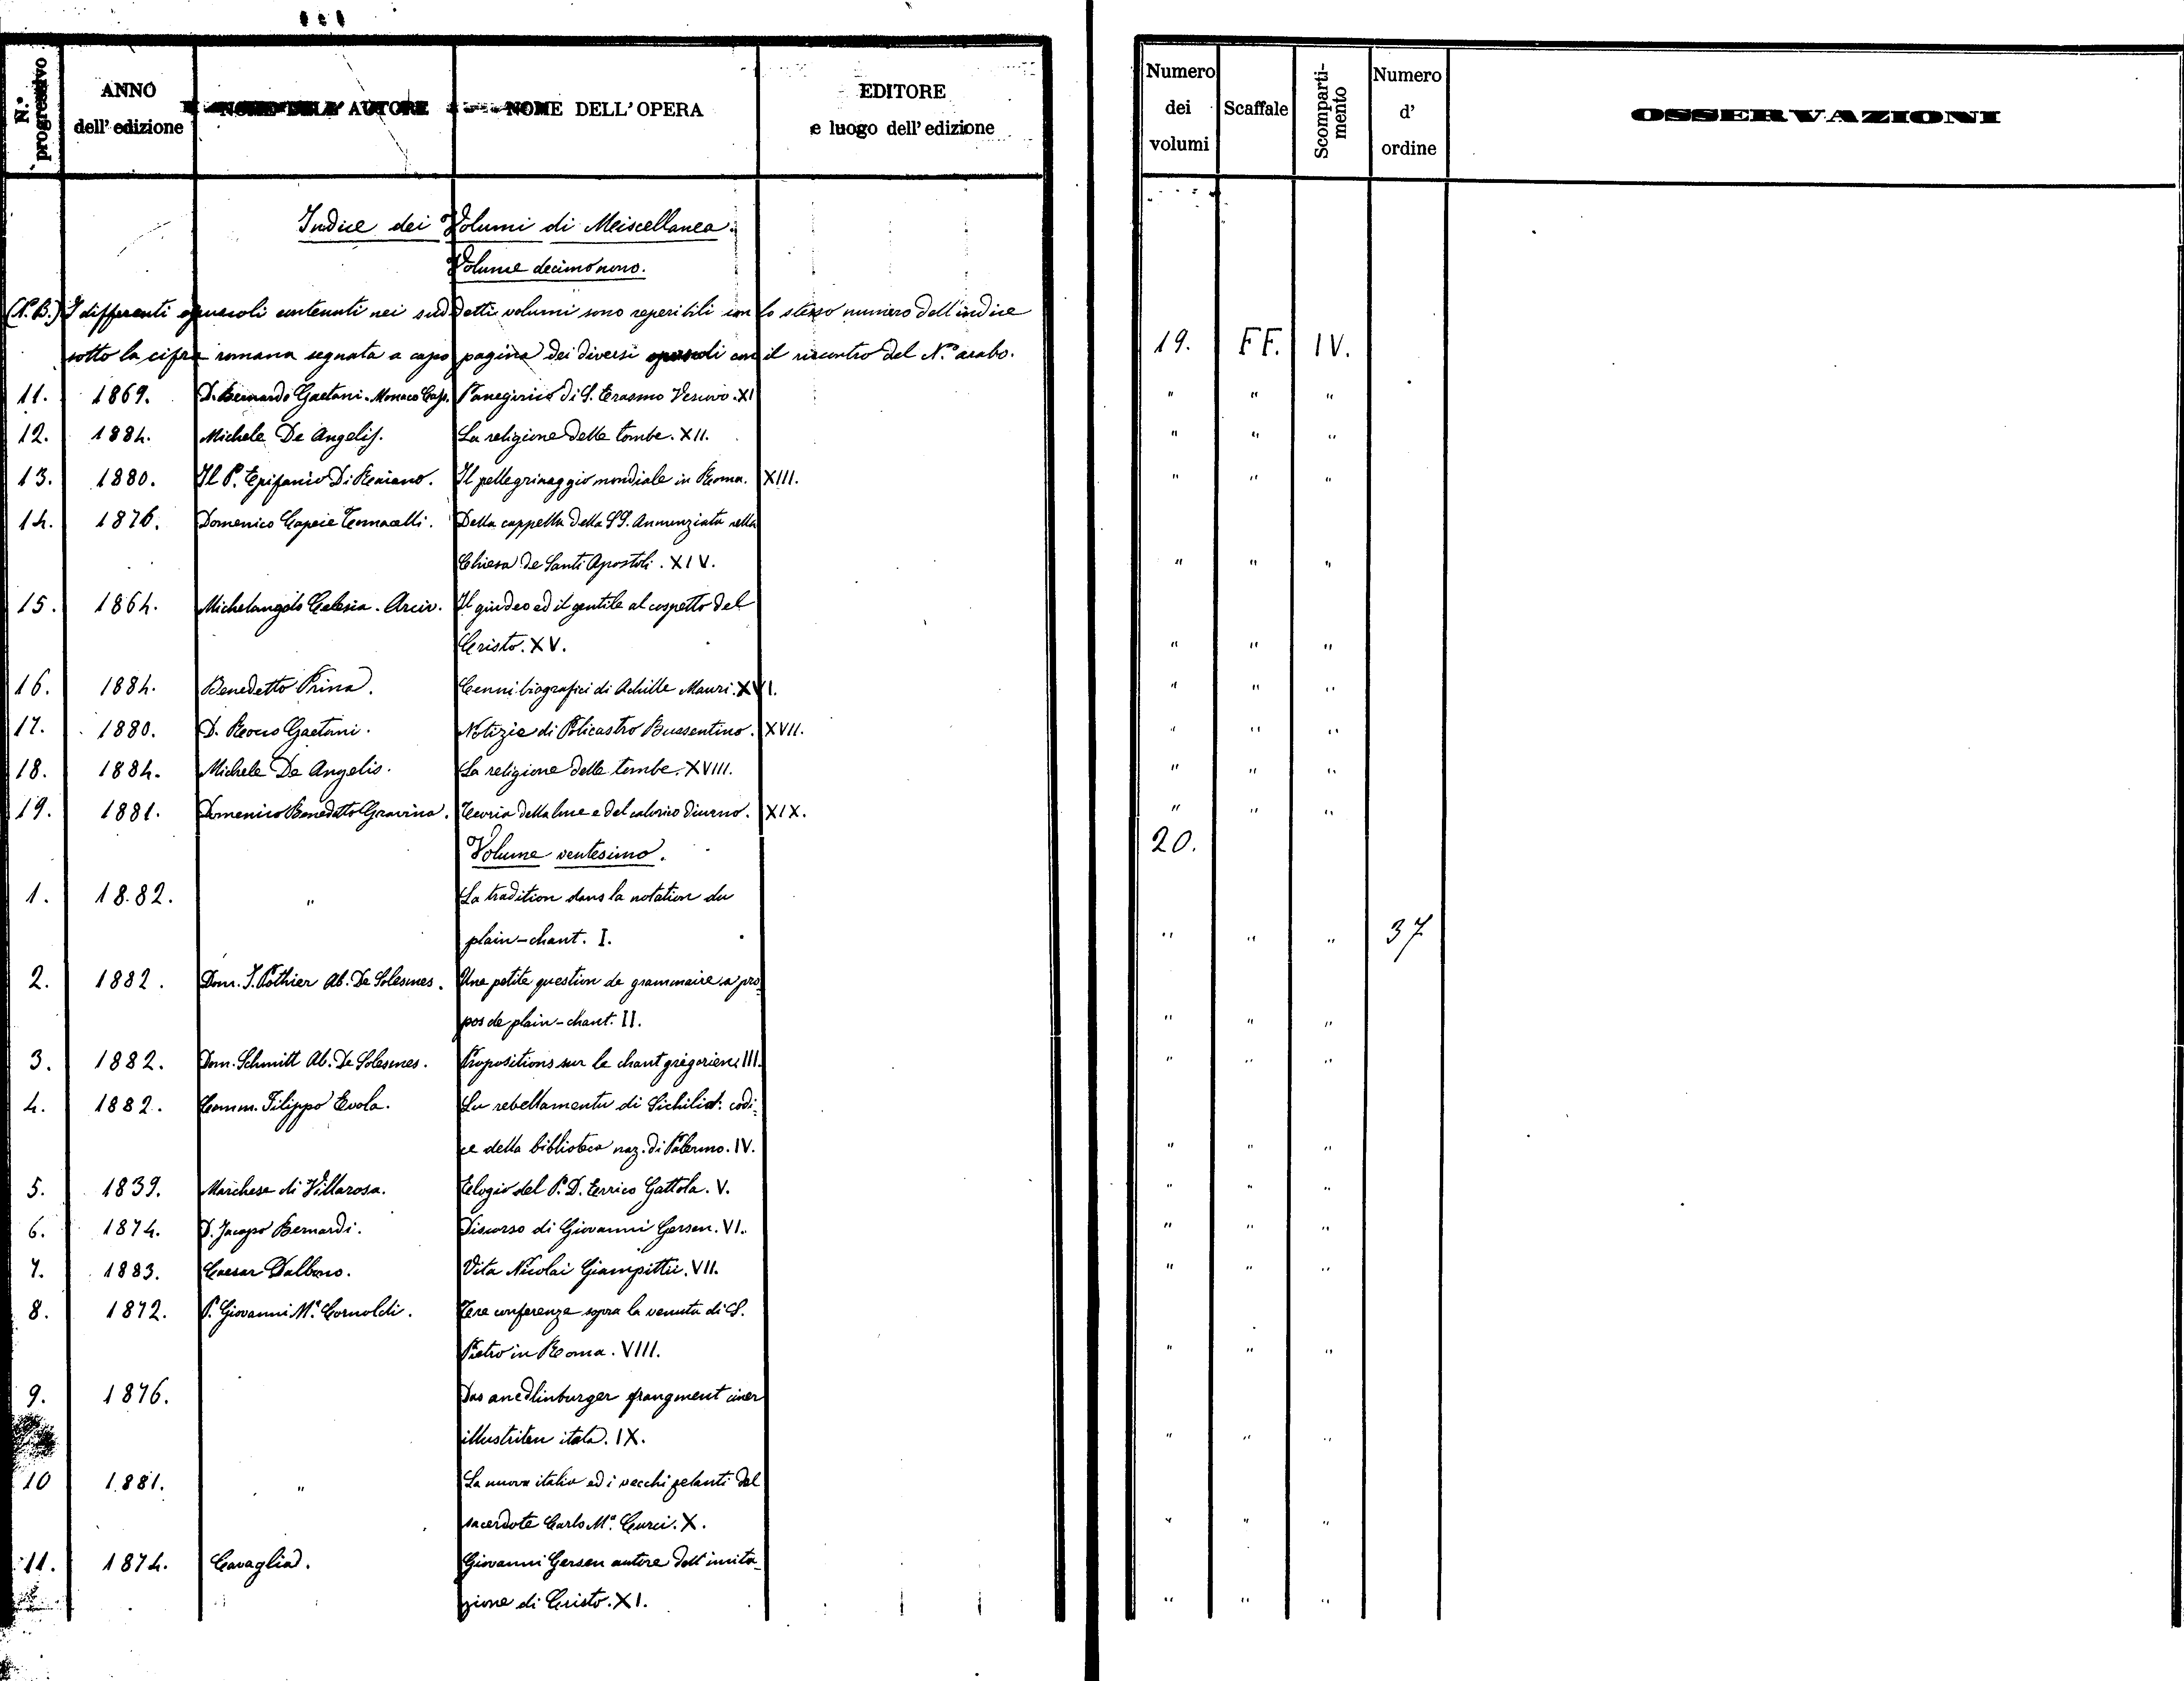 N.° progressivo ANNO dell' edizione NOME DELL' AUTORE NOME DELL' OPERA EDITORE e luogo dell' edizione Numero dei volumi Scaffale Scomparti-mento Numero d' ordine OSSERVAZIONI
Indice dei Volumi di Meiscellanea.
Volume decimonono.
(N.B.) I differenti opuscoli contenuti nei suddetti volumi sono reperibili con lo stesso numero dell'indice
sotto la cifra romana segnata a capo pagina dei diversi opuscoli con il riscontro del N.° arabo. 19. FF. IV.
11. 1869. D. Bernardo Gaetani. Monaco Cass. Panegirico di S. Erasmo Vescovo. XI " " "
12. 1884. Michele De Angelis. La religione delle tombe. XII. " " "
13. 1880. Il P. Epifanio Di Resiano. Il pellegrinaggio mondiale in Roma. XIII. " " "
14. 1876. Domenico Capece Tomacelli. Della cappella della SS. Annunziata nella
Chiesa de Santi Apostoli. XIV. " " "
15. 1864. Michelangelo Celesia. Arciv. Il giudeo ed il gentile al cospetto del
Cristo. XV. " " "
16. 1884. Benedetto Prina. Cenni biografici di Achille Mauri. XVI. " " "
17. 1880. D. Rocco Gaetani. Notizie di Policastro Bussentino. XVII. " " "
18. 1884. Michele De Angelis. La religione delle tombe. XVIII. " " "
19. 1881. Domenico Benedetto Gravina. Teoria della luce e del calorico diurno. XIX. " " "
Volume ventesimo. 20.
1. 18.82. " La tradition dans la notation du
plain-chant. I. " " " 37
2. 1882. Dom. J. Pothier Ab. De Solesmes. Une petite question de grammaire a pro-
pos de plain-chant. II. " " "
3. 1882. Dom. Schmitt Ab. De Solesmes. Propositions sur le chant grégorien. III. " " "
4. 1882. Comm. Filippo Evola. Lu rebellamentu di Sichilia: codi-
ce della biblioteca naz. di Palermo. IV. " " "
5. 1839. Marchese di Villarosa. Elogio del P. D. Errico Gattola. V. " " "
6. 1874. D. Jacopo Bernardi. Discorso di Giovanni Gersen. VI. " " "
7. 1883. Caesar Dalbono. Vita Nicolai Giampittii. VII. " " "
8. 1872. P. Giovanni M.ª Cornoldi. Tre conferenze sopra la venuta di S.
Pietro in Roma. VIII. " " "
9. 1876. Das anedlinburger frangment einer
illustriten itala. IX. " " "
10 1881. " La nuova italia ed i vecchi zelanti del
sacerdote Carlo M.ª Curci. X. " " "
11. 1874. Cavaglià. Giovanni Gersen autore dell'imita-
zione di Cristo. XI. " " "